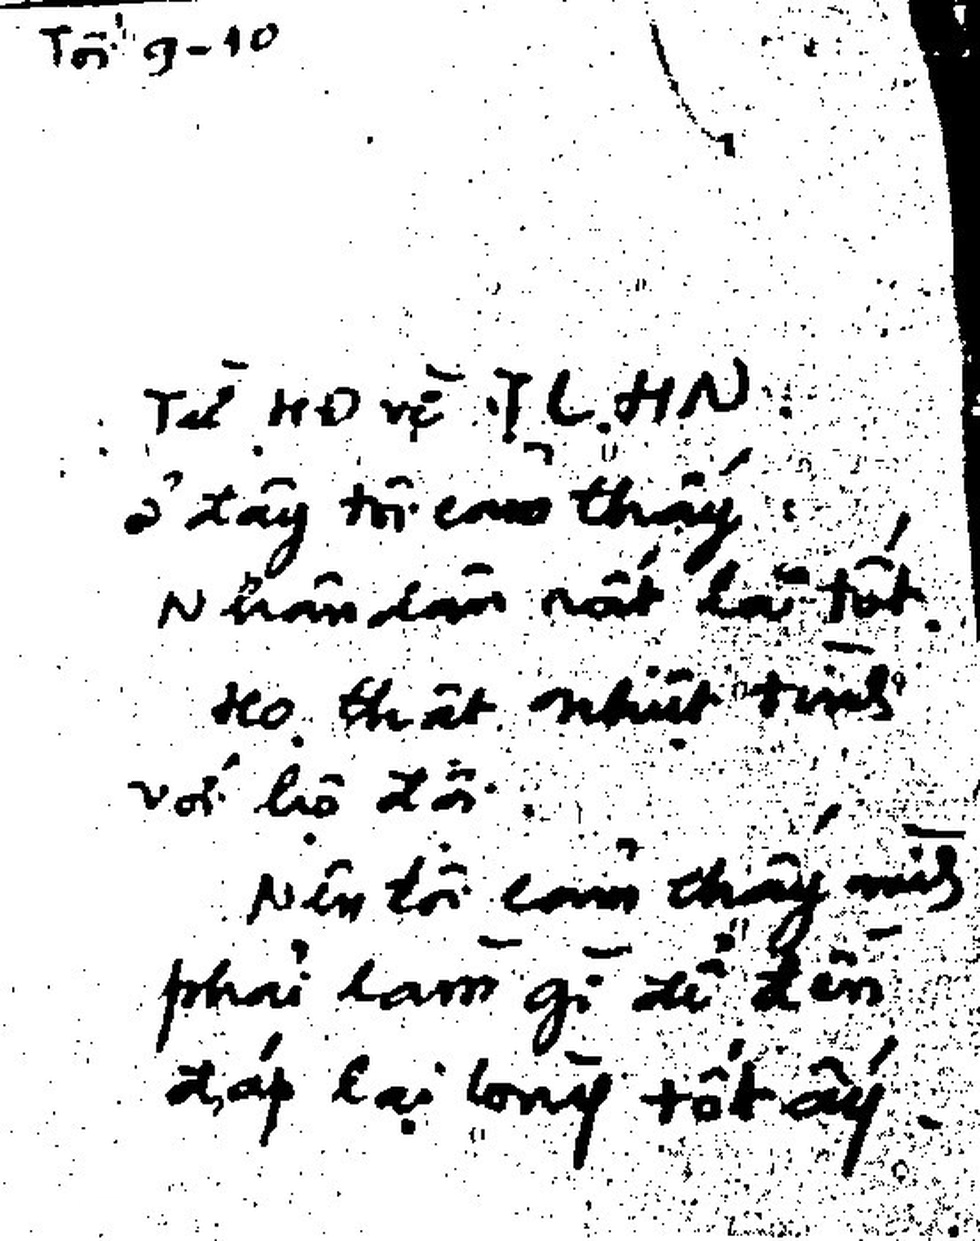 Tối 9-10
Từ HĐ về TL. HN
ở đây tôi cảm thấy:
Nhân dân rất là tốt.
Họ thật nhiệt tình
với bộ đội.
Nên tôi cảm thấy mình
phải làm gì để đền
đáp lại lòng tốt ấy.